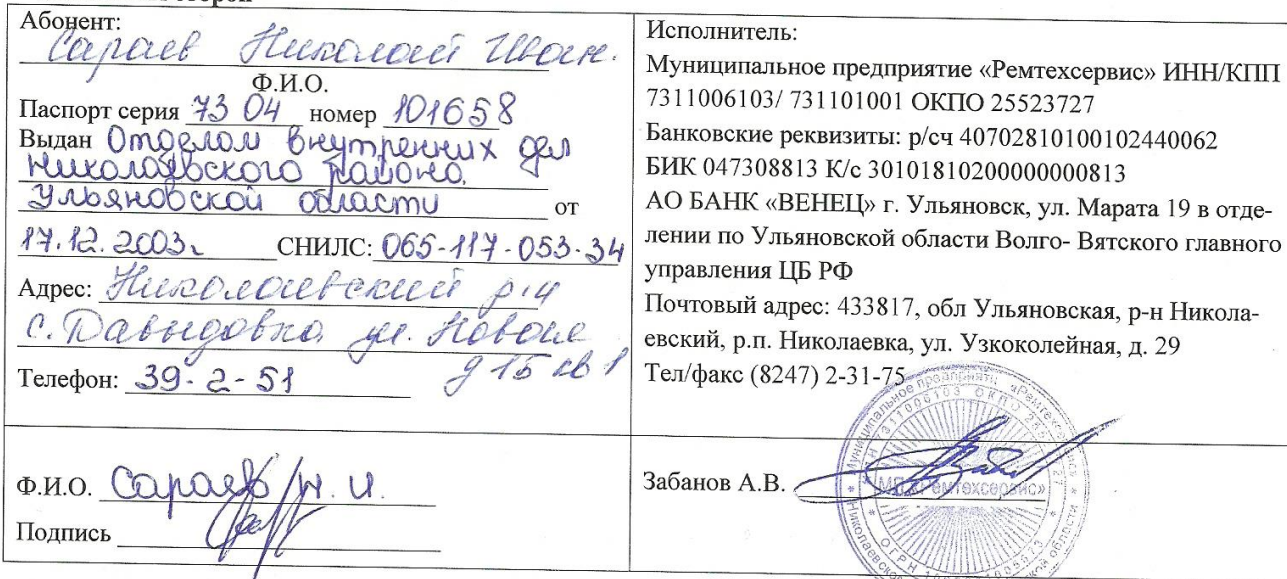 Абонент:
Сараев Николай Иван.
Ф.И.О.
Паспорт серия 73 04 номер 101658
Выдан Отделом внутренних дел
Николаевского района
Ульяновской области от
17.12.2003г СНИЛС: 065-117-053-34
Адрес: Николаевский р-н
с. Давыдовка, ул. Новая
д 15 кв 1
Телефон: 39-2-51
Исполнитель:
Муниципальное предприятие «Ремтехсервис» ИНН/КПП
7311006103/ 731101001 ОКПО 25523727
Банковские реквизиты: р/сч 40702810100102440062
БИК 047308813 К/с 30101810200000000813
АО БАНК «ВЕНЕЦ» г. Ульяновск, ул. Марата 19 в отде-
лении по Ульяновской области Волго- Вятского главного
управления ЦБ РФ
Почтовый адрес: 433817, обл Ульяновская, р-н Никола-
евский, р.п. Николаевка, ул. Узкоколейная, д. 29
Тел/факс (8247) 2-31-75
Ф.И.О. Сараев Н. И.
Подпись
Забанов А.В.
Муниципальное предприятие «Ремтехсервис»
ИНН 7311006103 ОКПО 25523727
МП «Ремтехсервис»